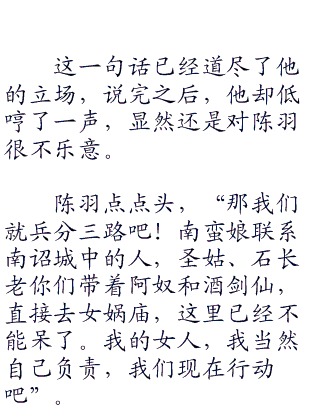 这一句话已经道尽了他
的立场，说完之后，他却低
哼了一声，显然还是对陈羽
很不乐意。
陈羽点点头，“那我们
就兵分三路吧！南蛮娘联系
南诏城中的人，圣姑、石长
老你们带着阿奴和酒剑仙，
直接去女娲庙，这里已经不
能呆了。我的女人，我当然
自己负责，我们现在行动
吧”。